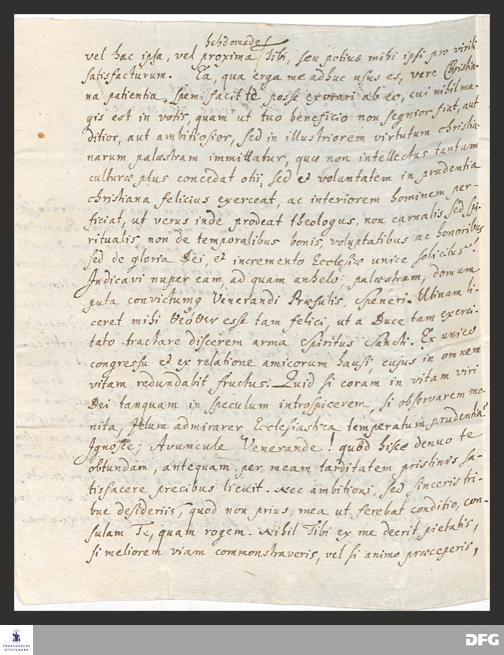 hebdomade
vel hac ipsa, vel proxima Tibi, seu potius mihi ipsi pro virili
satisfacturum. Ea, qua erga me adhuc usus es, vere Christia-
na patientia, spem facit te posse exorari ab eo, cui nihil ma-
gis est in votis, quam ut tuo beneficio non segnior fiat, aut
ditior, aut ambitiosior, sed in illustriorem virtutum christia-
narum palæstram immittatur, quæ non intellectus tantum
culturæ plus concedat otii, sed et voluntatem in prudentia
christiana felicius exerceat, ac interiorem hominem per-
ficiat, ut verus inde prodeat theologus, non carnalis, sed spi-
ritualis, non de temporalibus bonis, voluptatibus ac honoribus
sed de gloria Dei, et incremento Ecclesiæ unice solicitus.
Indicavi nuper eam, ad quam anhelo palæstram, domum
puta convictumq Venerandi Præsulis, Speneri. Utinam li-
ceret mihi esse tam felici, ut a Duce tam exerci-
tato tractare discerem arma Spiritus Sancti. Ex unico
congressu et ex relatione amicorum hausi, cujus in omnem
vitam redundabit fructus. Quid si coram in vitam viri
Dei tanquam in speculum introspicerem, si observarem mo-
nita, Zelum admirarer Ecclesiastica temperatum prudentia?
Ignosce, Avuncule Venerande! quod hisce denuo te
obtundam, antequam per meam tarditatem pristinis sa-
tisfacere precibus licuit. Nec ambitioni, sed sinceris tri-
bue desideriis, quod non prius, mea ut ferebat conditio, con-
sulam Te, quam rogem. Nihil Tibi ex me deerit pietatis,
si meliorem viam commonstraveris, vel si animo præceperis,
FRANCKESCHE
STIFTUNGEN
DFG